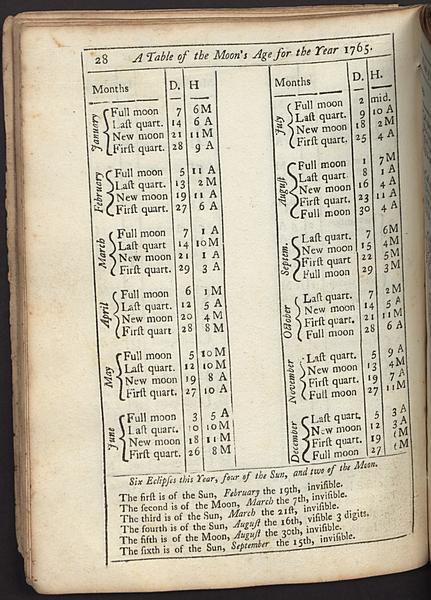 28 A Table of the Moon's Age for the Year 1765.
Months D. H
January
Full moon 7 6 M
Laſt quart. 14 6 A
New moon 21 11 M
Firſt quart. 28 9 A
February
Full moon 5 11 A
Laſt quart. 13 2 M
New moon 19 11 A
Firſt quart. 27 6 A
March
Full moon 7 1 A
Laſt quart 14 10 M
New moon 21 1 A
Firſt quart. 29 3 A
April
Full moon 6 1 M
Laſt quart. 12 5 A
New moon 20 4 M
Firſt quart 28 8 M
May
Full moon 5 10 M
Laſt quart. 12 10 M
New moon 19 8 A
Firſt quart. 27 10 A
June
Full moon 3 5 A
Laſt quart. 10 10 M
New moon 18 11 M
Firſt quart. 26 8 M
Months D. H.
July
Full moon 2 mid.
Laſt quart. 9 10 A
New moon 18 2 M
Firſt quart. 25 4 A
Auguſt
Full moon 1 7 M
Laſt quart 8 1 A
New moon 16 4 A
Firſt quart. 23 11 A
Full moon 30 4 A
Septem.
Laſt quart. 7 6 M
New moon 15 4 M
Firſt quart 22 5 M
Full moon 29 3 M
October
Laſt quart. 7 2 M
New moon 14 5 A
Firſt quart. 21 11 M
Full moon 28 6 A
November
Laſt quart. 5 9 A
New moon 13 4 M
Firſt quart. 19 7 A
Full moon 27 11 M
December
Laſt quart. 5 3 A
New moon 12 3 A
Firſt quart. 19 M
Full moon 27 M
Six Eclipſes this Year, four of the Sun, and two of the Moon.
The firſt is of the Sun, February the 19th, inviſible.
The second is of the Moon, March the 7th, inviſible.
The third is of the Sun, March the 21ſt, inviſible.
The fourth is of the Sun, Auguſt the 16th, viſible 3 digits.
The fifth is of the Moon, Auguſt the 30th, inviſible.
The ſixth is of the Sun, September the 15th, inviſible.